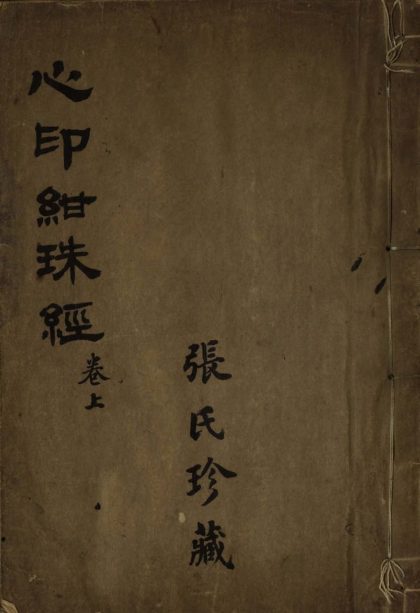 心印紺珠經
卷上
張氏珍藏